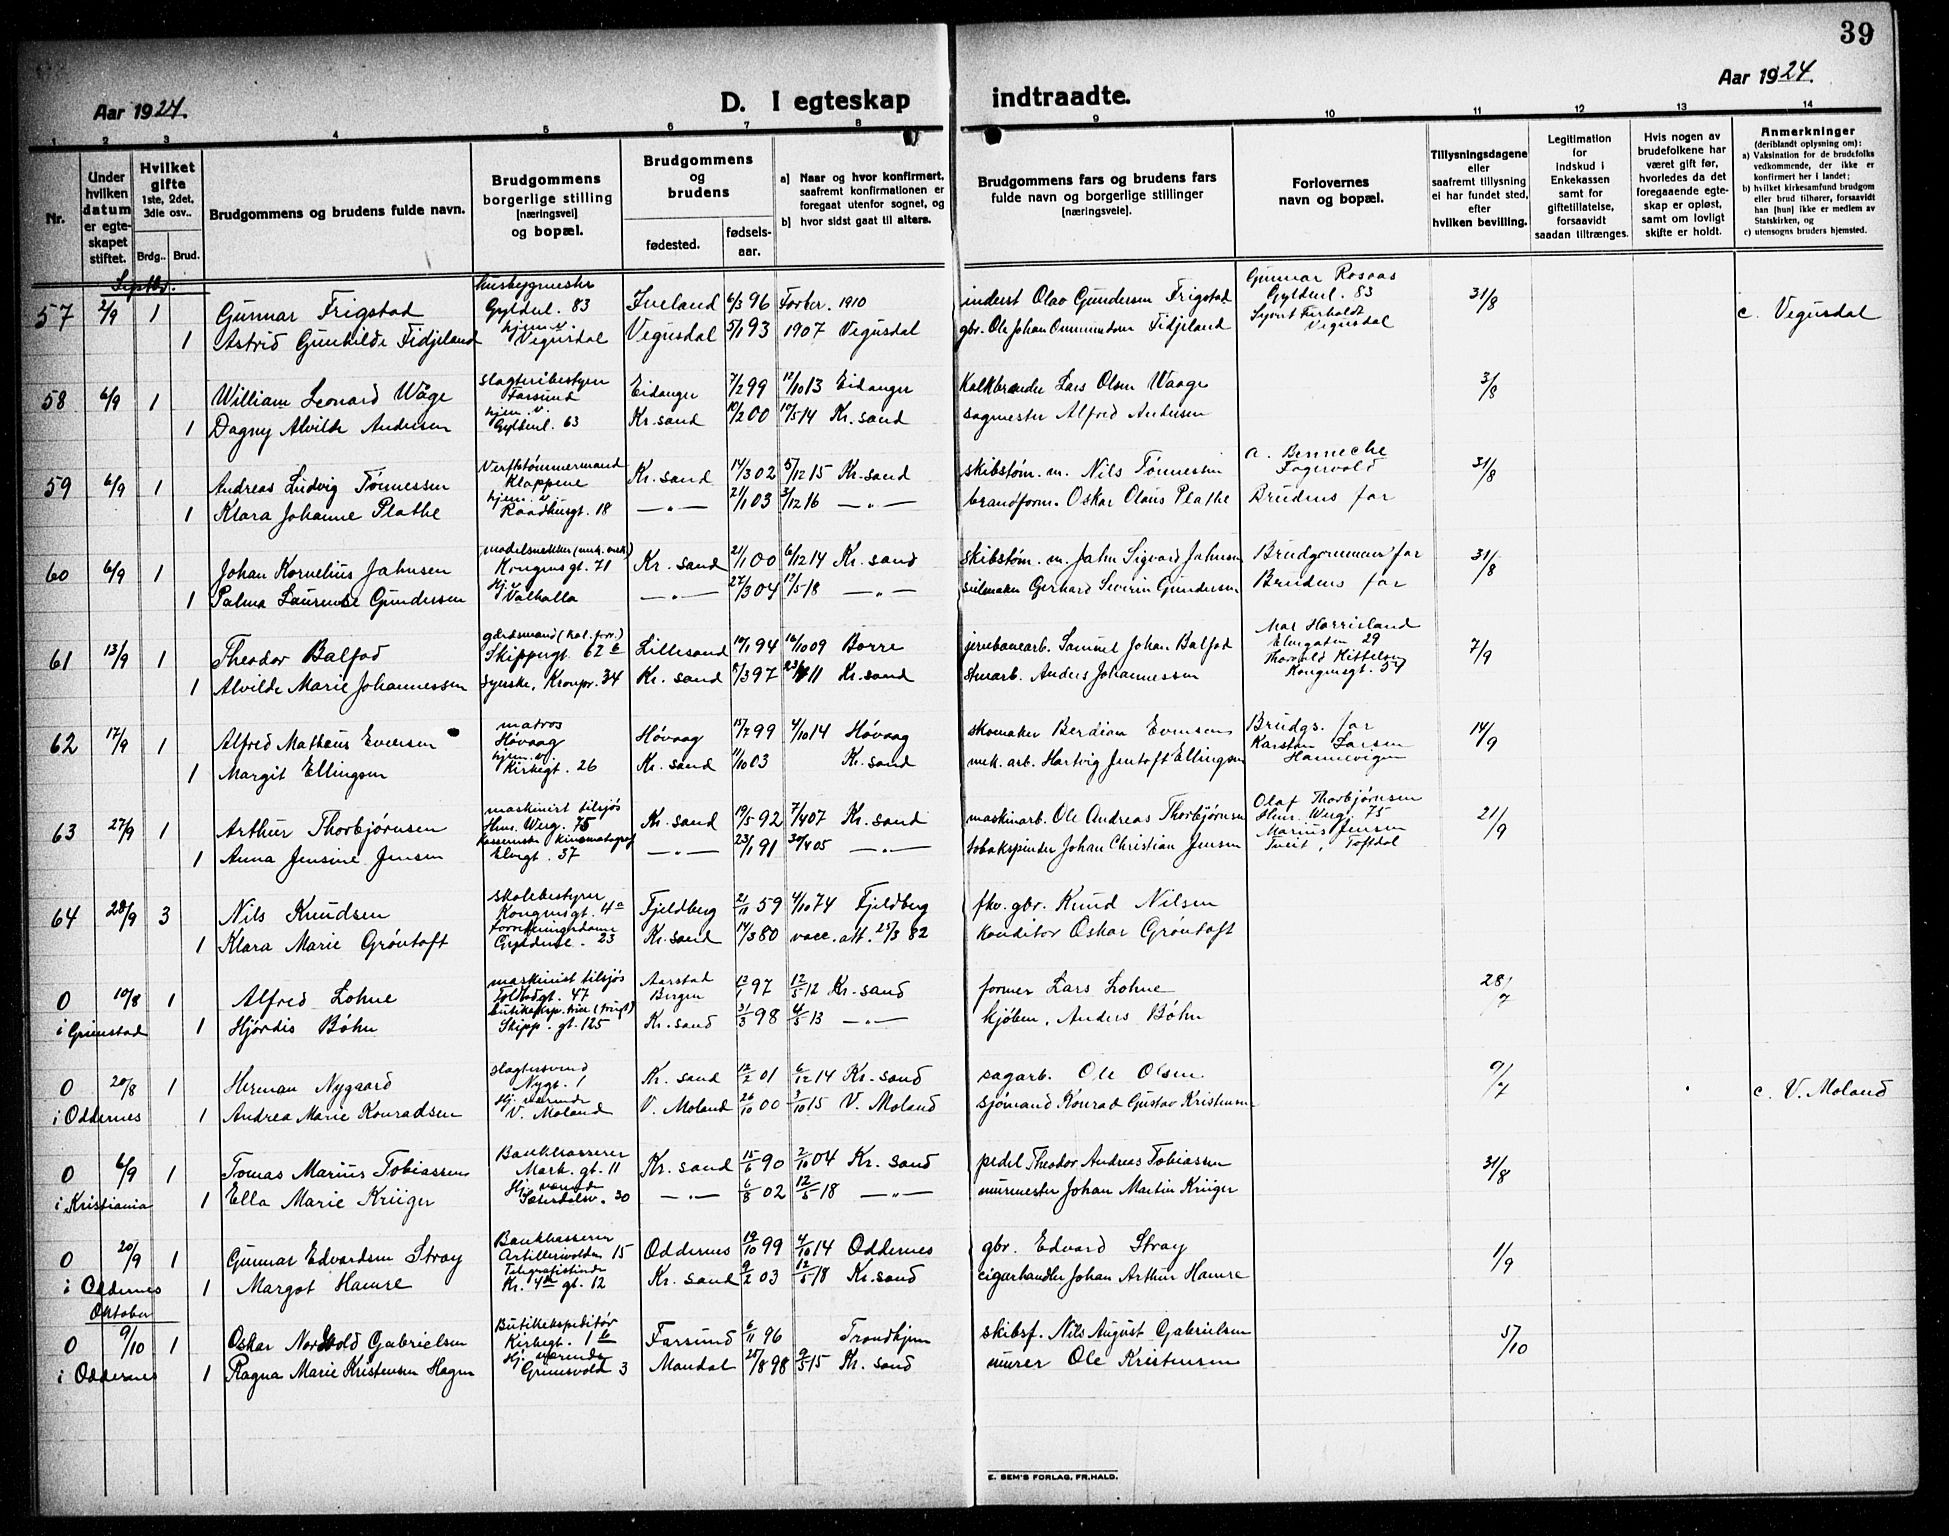 39
Aar 1924.
D. I egteskap indtraadte.
Aar 1924.
1 2 3 4 5 6 7 8 9 10 11 12 13 14
Nr.
Under hvilken datum er egteskapet stiftet.
Hvilket gifte 1ste, 2det, 3die osv..
Brdg.. Brud.
Brudgommens og brudens fulde navn.
Brudgommens borgerlige stilling [næringsvei] og bopæl.
Brudgommens og brudens
fødested. fødselsaar.
a) Naar og hvor konfirmert, saafremt konfirmationen er foregaat utenfor sognet, og
b) hvor sidst gaat til alters.
Brudgommens fars og brudens fars fulde navn og borgerlige stillinger [næringsveie].
Forlovernes navn og bopæl.
Tillysningsdagene eller saafremt tillysning ei har fundet sted, efter hvilken bevilling.
Legitimation for indskud i Enkekassen samt for giftetillatelse, forsaavidt saadan tiltrænges.
Hvis nogen av brudefolkene har været gift før, hvorledes da det foregaaende egteskap er opløst, samt om lovligt skifte er holdt.
Anmerkninger (deriblandt oplysning om):
a) Vaksination for de brudefolks vedkommende, der ikke er konfirmert her i landet;
b) hvilket kirkesamfund brudgom eller brud tilhører, forsaavidt han [hun] ikke er medlem av Statskirken, og
c) utensogns bruders hjemsted.
Septbr.
57 2/9 1 Gunnar Frigstad husbygmester Gyldenl. 83 Iveland 6/3 96 1910 inderst Olav Gundersen Frigstad Gunnar Rosaas Gyldenl. 83 31/8 c. Vegusdal
1 Astrid Gunhilde Fidjeland hjem. v. Vegusdal Vegusdal 5/1 93 1907 Vegusdal gbr. Ole Johan Fidjeland Vegusdal
58 6/9 1 William Leonard Wåge slagteribestyrer Farsund Eidanger 7/2 99 12/10 13 Eidanger Kalkbrænder Lars Olsen Waage 31/8
1 Dagny Alvilde Andersen hjem. v. Gyldenl. 63 Kr.sand 19/2 00 14 Kr.sand sagmester Alfred Andersen
59 6/9 1 Andreas Ludvig Tønnessen Verftstømmermand Kloppene Kr.sand 14/3 02 5/12 15 Kr.sand skibstøm. m. Nils Tønnessen A. Benneche Fagervold 31/8
1 Klara Johanne Plathe hjem. v. Raadhusgt. 18 —"— 21/1 03 3/12 16 —"— brandform. Oskar Olaus Plathe Brudens far
60 6/9 1 Johan Kornelius Jahnsen modelsnekker (mek. verk.) Kongensgt. 71 Kr.sand 21/1 00 6/12 14 Kr.sand skibstøm. m. Jahn Sigvard Jahnsen Brudgommens far 31/8
1 Palma Laurentse Gundersen Hj. v. Valhalla —"— 27/3 04 17/5 18 —"— seilmaker Gerhard Severin Gundersen Brudens far
61 13/9 1 Theodor Balfod Skippergt. 62 b Lillesand 10/1 94 10/10 09 Borre jernbanearb. Samuel Johan Balfod Elvegaten 29 7/9
1 Alvilde Marie Johannessen syerske, Kronpr. 34 Kr.sand 8/3 97 11 Kr.sand stenarb. Anders Johannessen Thorvald Kittelsen Kongensgt. 54
62 17/9 1 Alfred Matheus Evensen matros Høvaag Høvaag 15/7 99 4/10 14 Høvaag skomaker Berdian Evensen Brudgs. far 14/9
1 Margit Ellingsen hjem. v. Kirkegt. 26 Kr.sand 11/10 03 Kr.sand mek. arb. Hartvig Jentoft Ellingsen Karsten Larsen Hannevigen
63 27/9 1 Arthur Thorbjørnsen maskinist tilsjøs Henr. Werg. 75 Kr.sand 19/5 92 7/4 07 Kr.sand maskinarb. Ole Andreas Thorbjørnsen Olaf Thorbjørnsen Henr. Werg. 75 21/9
1 Anna Jensine Jensen kinematograf Elvegt. 37 —"— 23/1 91 30/4 05 —"— tobakspinder Johan Christian Jensen Marius Jensen Tveit, Toftdal
64 28/9 3 Nils Knudsen skolebestyrer Kongensgt. 4a Fjeldberg 2/11 59 4/10 74 Fjeldberg fhv. gbr. Knud Nilsen
1 Klara Marie Grøntoft Forretningsdame Gyldenl. 23 Kr.sand 14/3 80 vacc. att. 25/3 82 konditor Oskar Grøntoft
0 10/8 1 Alfred Lohne maskinist tilsjøs Toldbodgt. 47 Aarstad Bergen 12/1 97 12/5 12 Kr.sand former Lars Lohne 28/7
i Grimstad 1 Hjørdis Bøhn butikeksp. trice (frugt) Skipp. gt. 125 Kr.sand 31/3 98 4/5 13 —"— kjøbm. Anders Bøhn
0 20/8 1 Herman Nygaard slagtersvend Nygt. 1 Kr.sand 12/2 01 6/12 14 Kr.sand sagarb. Ole Olsen 9/7
i Oddernes 1 Andrea Marie Konradsen Hj. værende V. Moland V. Moland 26/10 00 3/10 15 V. Moland sjømand Konrad Gustav Kristensen c. V. Moland
0 6/9 1 Tomas Marius Tobiassen Bankkasserer Mark. gt. 11 Kr.sand 15/6 90 2/10 04 Kr.sand pedel Theodor Andreas Tobiassen 31/8
i Kristiania 1 Ella Marie Krüger Hj. værende Sæterdalsv. 30 —"— 6/8 02 12/5 18 —"— murmester Johan Martin Krüger
0 20/9 1 Gunnar Edvardsen Stray Bankkasserer Artillerivolden 15 Oddernes 19/10 99 4/10 14 Oddernes gbr. Edvard Stray 1/9
i Oddernes 1 Margot Hamre Telegrafistinde Kr. 4th gt. 12 Kr.sand 9/2 03 12/5 18 Kr.sand cigarhandler Johan Arthur Hamre
Oktober
0 9/10 1 Oskar Nordvold Gabrielsen Butikekspeditør Kirkegt. 1 b Farsund 6/11 96 Trondhjem skibsf. Nils August Gabrielsen 5/10
i Oddernes 1 Ragna Marie Kristensen Hagen Hj. værende Grimsvold 3 Mandal 25/8 98 9/5 15 Kr.sand murer Ole Kristensen
E. SEM'S FORLAG, FR.HALD.